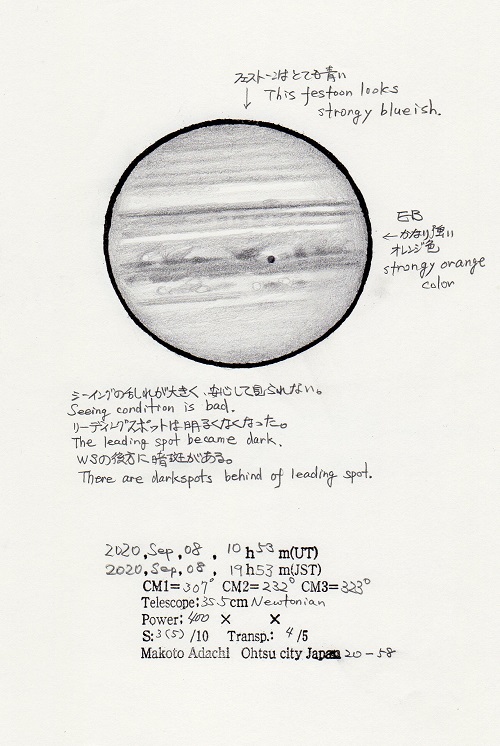 フェストーンはとても青い
This festoon looks
strongy blueish.
EB
←かなり強い
オレンジ色
strongy orange
color
シーイングのゆれが大きく、安心して見られない。
Seeing condition is bad.
リーディングスポットは明るくなくなった。
The leading spot became dark.
WSの後方に暗斑がある。
There are darkspots behind of leading spot.
2020, Sep, 08, 10h53m(UT)
2020, Sep, 08, 19h53m(JST)
CM1=307° CM2=232° CM3=323°
Telescope: 35.5cm Newtonian
Power: 400 × ×
S: 3(5) /10 Transp.: 4 /5
Makoto Adachi Ohtsu city Japan 20-58